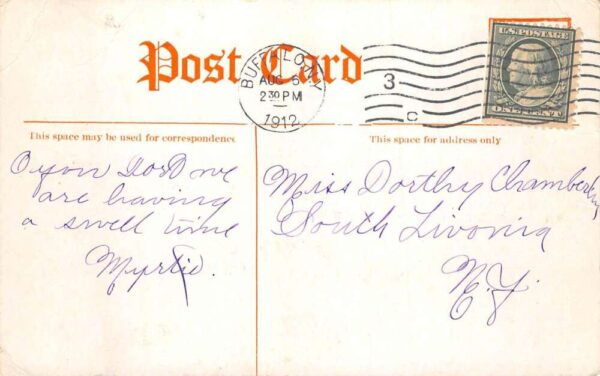 Post Card
BUFFALO, N.Y.
AUG 6
2 30 PM
1912
3
C
U.S. POSTAGE
ONE CENT
This space may be used for correspondence
This space for address only
we
are having
a swell time
Myrtie.
Miss Dorthy Chamberlin
South Livonia
N.Y.